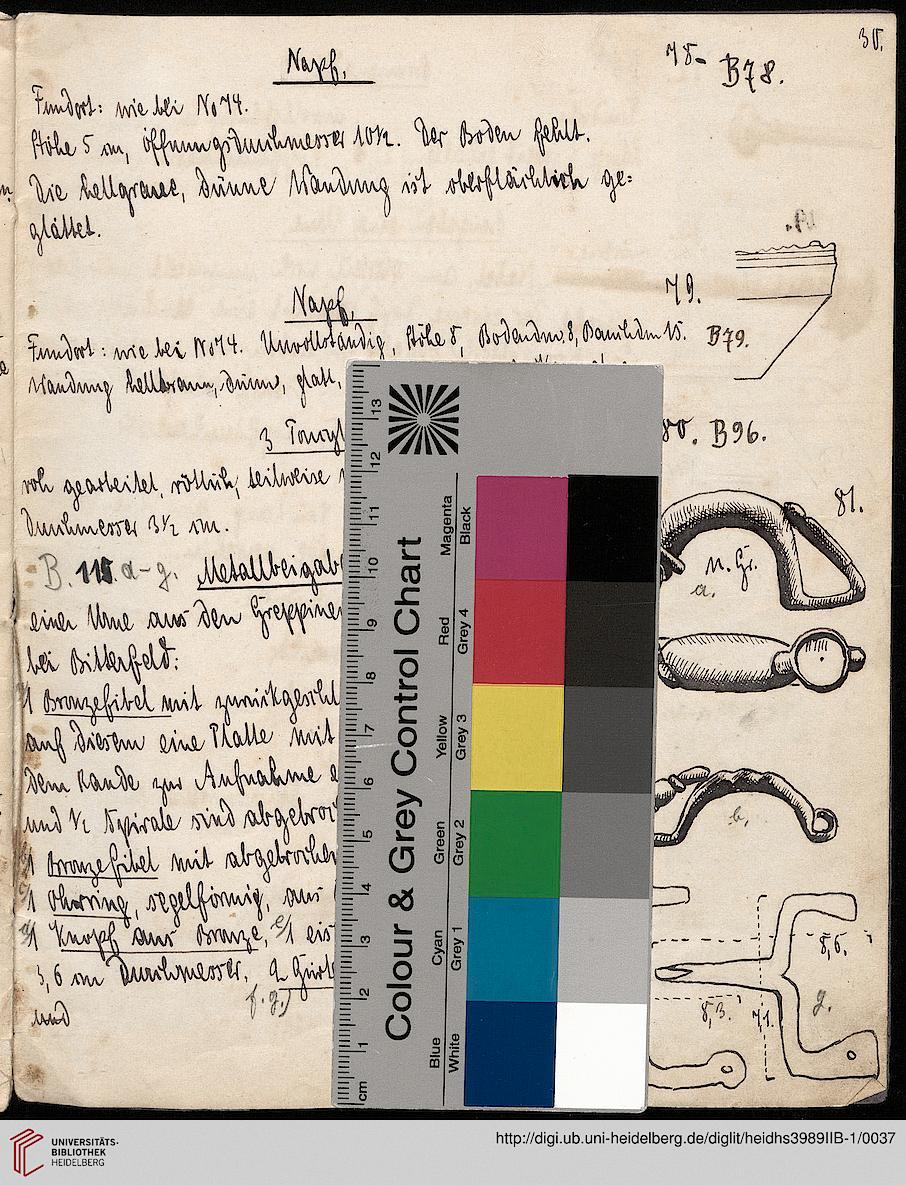 30.
Napf.
78. B78.
Fundort: wie bei No 74.
Höhe 5 cm, Öffnungsdurchmesser 10½. Der Boden fehlt.
Die hellgraue, dünne Wandung ist oberflächlich ge=
glättet.
Napf.
79.
Fundort: wie bei No 74. Unvollständig, Höhe 8, Bodendm. 8, Bauchdm 15. B79.
Wandung hellbraun, dünn, glatt,
3
80. B96.
roh gearbeitet, rötlich, teilweise
Durchmesser 3½ cm.
81.
B. 115. a-g. Metallbeigab
n. Gr.
a.
einer Urne aus den Greppiner
bei Bitterfeld:
1 Bronzefibel mit zurückgeschl
auf diesem eine Platte mit
dem Rande zur Aufnahme
und ½ Spirale sind abgebroc
b,
1 Bronzefibel mit abgebrochen
1 Ohrring, segelförmig, aus
1 Knopf aus Bronze, e/1 eis
3,6 cm Durchmesser. 2 Gürt
f. g.)
und
8,6.
8,3.
7,1.
g.
Colour & Grey Control Chart
Magenta
Black
Red
Grey 4
Yellow
Grey 3
Green
Grey 2
Cyan
Grey 1
Blue
White
13
12
11
10
9
8
7
6
5
4
3
2
1
cm
UNIVERSITÄTS-
BIBLIOTHEK
HEIDELBERG
http://digi.ub.uni-heidelberg.de/diglit/heidhs3989IIB-1/0037